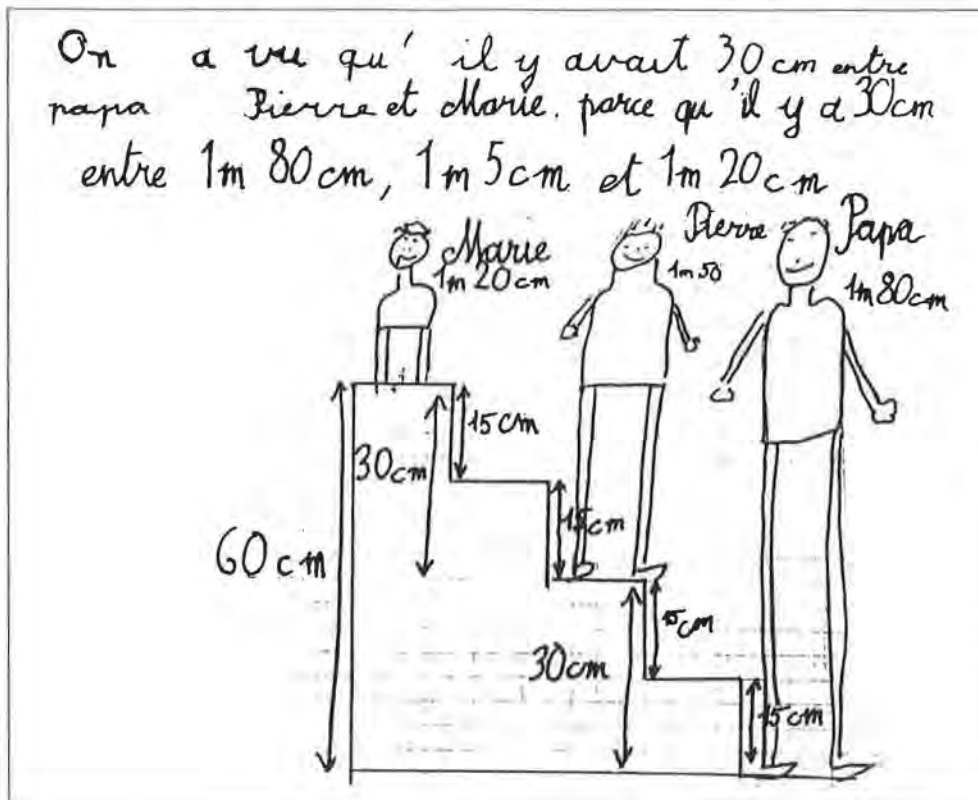 On a vu qu' il y avait 30 cm entre
papa Pierre et Marie. parce qu'il y a 30cm
entre 1m 80 cm, 1m 5cm et 1m 20cm
Marie
1m 20 cm
Pierre
1m 50
Papa
1m 80cm
15 cm
30cm
15cm
60 cm
15cm
30cm
15cm